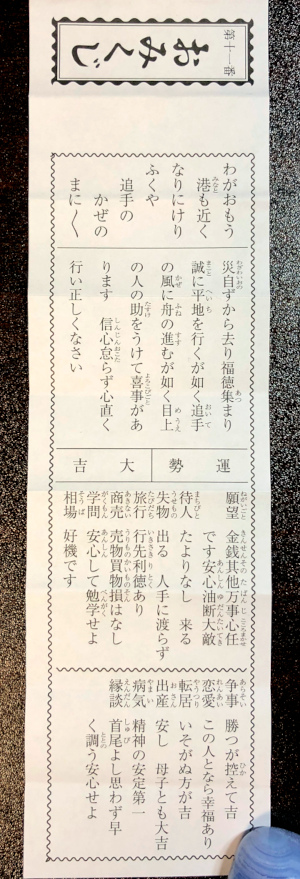 第十一番
おみくじ
わがおもう
港も近く
なりにけり
ふくや
追手の
かぜの
まに〳〵
災自ずから去り福徳集まり
誠に平地を行くが如く追手
の風に舟の進むが如く目上
の人の助をうけて喜事があ
ります 信心怠らず心直く
行い正しくなさい
運勢 大吉
願望 金銭其他万事心任
です安心油断大敵
待人 たよりなし 来る
失物 出る 人手に渡らず
旅行 行先利徳あり
商売 売物買物損はなし
学問 安心して勉学せよ
相場 好機です
争事 勝つが控えて吉
恋愛 この人となら幸福あり
転居 いそがぬ方が吉
出産 安し 母子とも大吉
病気 精神の安定第一
縁談 首尾よし思わず早
く調う安心せよ